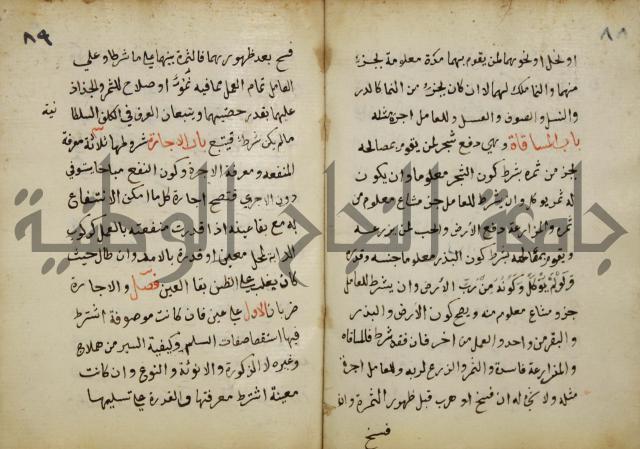 ٨٨
او نخل او نحوهما لمن يقوم بهما مدة معلومة بجزء
منهما والنما ملك لهما لا ان كان بجزء من النما كالدر
والنسل والصوف والعسل وللعامل اجرة مثله
باب المساقاة وهي دفع شجر لمن يقوم بمصالحه
بجز من ثمره بشرط كون الشجر معلوما وان يكون
له ثمر يوكل وان يشرط للعامل جز مشاع معلوم من
ثمره والمزارعة دفع الارض والحب لمن يزرعه
ويقوم بمصالحه بشرط كون البذر معلوما جنسه وقدره
ولو لم يؤكل وكونه من رب الارض وان يشرط للعامل
جزو مشاع معلوم منه ويصح كون الارض والبذر
والبقر من واحد والعمل من اخر فان فقد شرط فالمساقاه
والمزارعة فاسدة والثمر والزرع لربه وللعامل اجرة
مثله ولا شي له ان فسخ او هرب قبل ظهور الثمرة وان
فسخ
٨٩
فسخ بعد ظهورها فالثمرة بينهما على ما شرطا وعلى
العامل تمام العمل مما فيه نمو او صلاح للثمر والجذاذ
عليهما بقدر حصتيهما ويتبعان العرف في الكلف السلطا
نية
مالم يكن شرط فيتبع باب الاجارة شروطها ثلاثة معرفة
المنفعه ومعرفة الاجرة وكون النفع مباحا يستوفى
دون الاجزي فتصح اجارة كل ما امكن الانتفاع
به مع بقا عينه اذا قدرت منفعته بالعمل كركوب
الدابة لمحل معين او قدرة بالامد وان طال حيث
كان يغلب على الظن بقا العين فصل والاجارة
ضربان الاول على عين فان كانت موصوفة اشترط
فيها استقصا صفات السلم وكيفية السير من هملاج
وغيره لا الذكورة والانوثة والنوع وان كانت
معينة اشترط معرفتها والقدرة على تسليمها
جامعة النجاح الوطنية